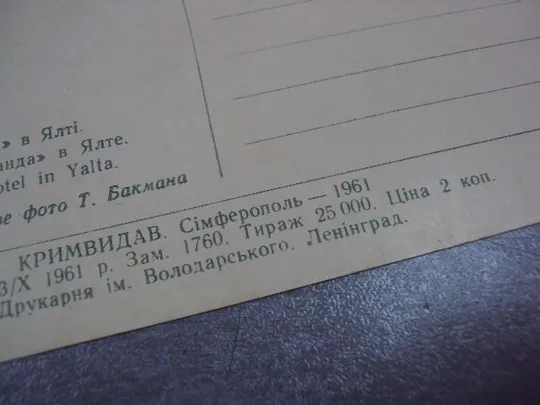 » в Ялті.
анда» в Ялте.
otel in Yalta.
е фото Т. Бакмана
КРИМВИДАВ. Сімферополь — 1961
3/X 1961 р. Зам. 1760. Тираж 25 000. Ціна 2 коп.
Друкарня ім. Володарського. Ленінград.